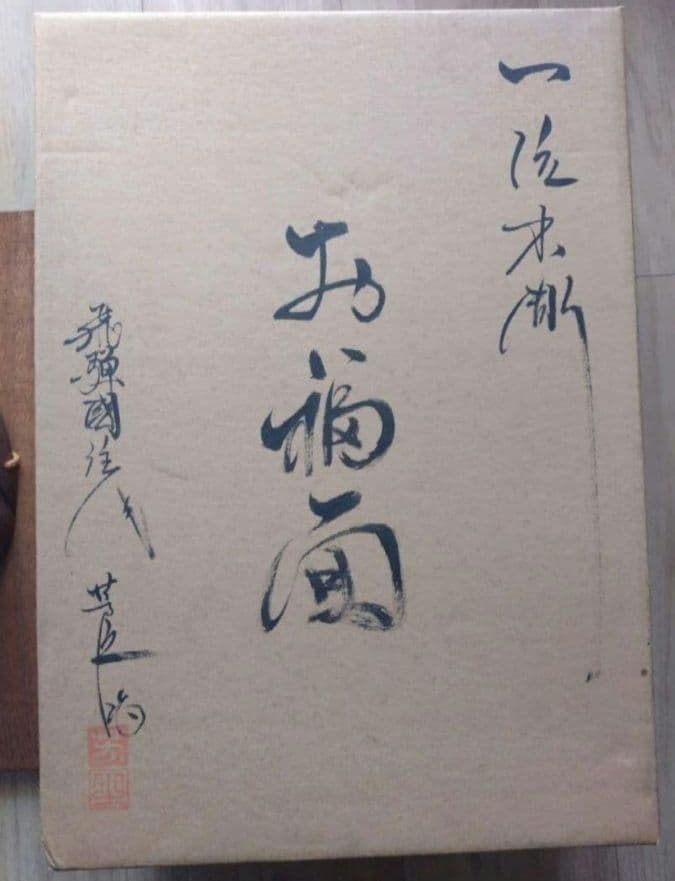 一位木彫
お福面
飛騨國住人